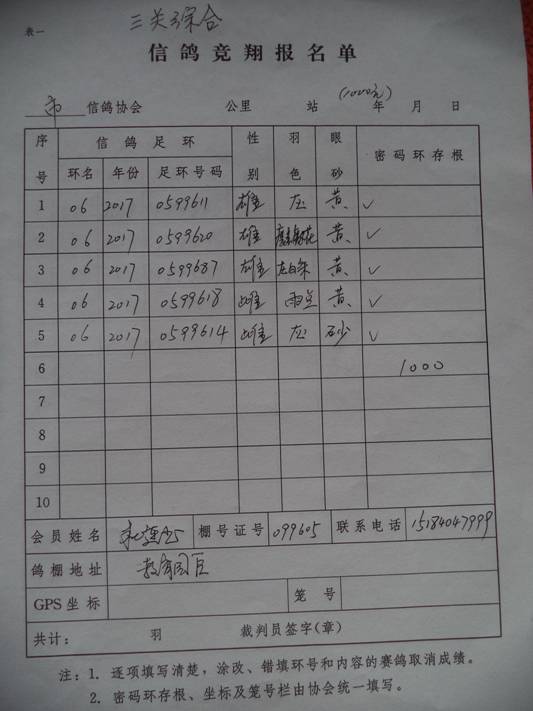 表一
三关综合
信鸽竞翔报名单
市 信鸽协会 公里 站 (1000元) 年 月 日
序号 信鸽足环 性别 羽色 眼砂 密码环存根
环名 年份 足环号码
1 06 2017 0599611 雄 灰 黄 ✓
2 06 2017 0599620 雄 黄 ✓
3 06 2017 0599687 雄 灰白条 黄 ✓
4 06 2017 0599618 雌 雨点 黄 ✓
5 06 2017 0599614 雌 灰 砂 ✓
6 1000
7
8
9
10
会员姓名 棚号证号 099605 联系电话 15184047999
鸽棚地址 教育园区
GPS坐标 笼号
共计: 羽 裁判员签字(章)
注:1. 逐项填写清楚,涂改、错填环号和内容的赛鸽取消成绩。
2. 密码环存根、坐标及笼号栏由协会统一填写。